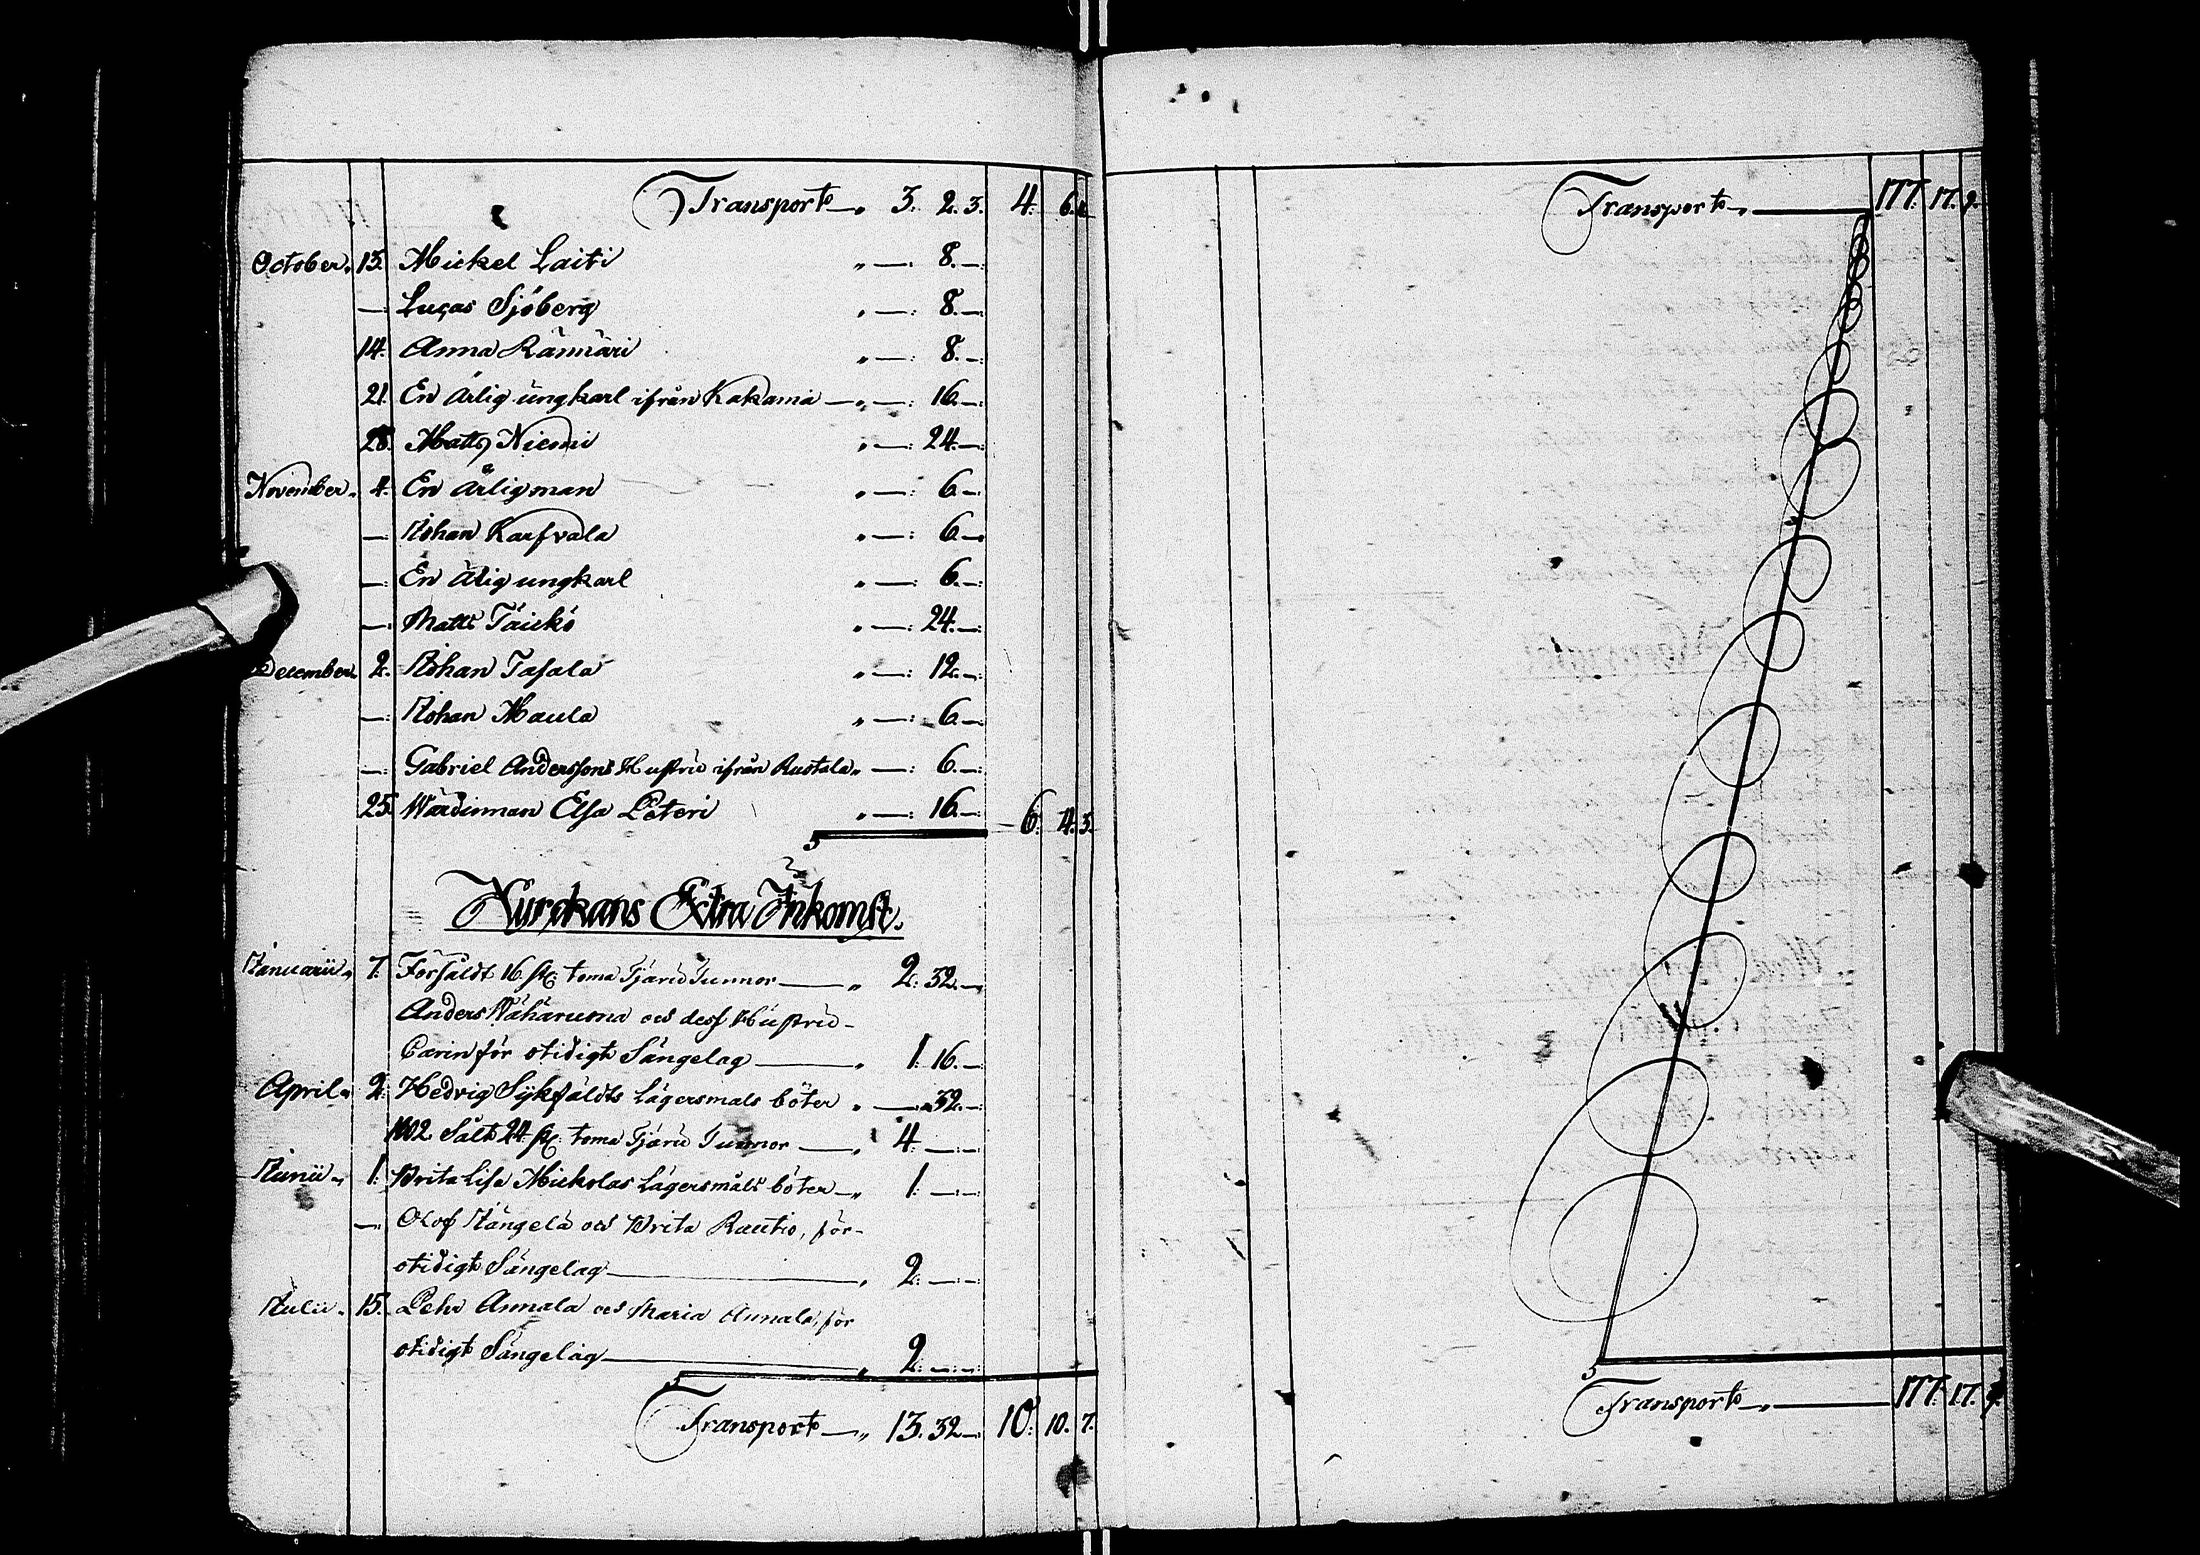 Transport „ 3. 2. 3. 4. 6.
October. 13. Mickel Laiti „ — : 8. — :
— : Lucas Sjöberg „ — : 8. —
14. Anna Rännäri „ — : 8. — :
21. En ärlig ungkarl ifrån Kakama — „ — : 16. — :
28. Matts Niemi „ — : 24. — :
November. 4. En ärlig man „ — : 6. —
— : Johan Karfvala „ — : 6. —
— : En älig ungkarl „ — : 6. — :
— : Matts Täickö „ — : 24. — :
December. 2. Johan Tafala „ — : 12. — :
— : Johan Maula „ — : 6. — :
— : Gabriel Anderssons Hustru ifrån Rustala „ — : 6. — :
25. Wärdinnan Elsa Peteri „ — : 16. —
6. 4. 3.
Kyrckans Extra Inkomst.
Januarii „ 7. Försåldt 16. st: toma Tjäru Tunnor — „ 2. 32. —
Anders Wäháruona och dess Hustru
Carin för otidigt Sängelag — „ 1. 16. —
April „ 2. Hedvig Sykfäldts Lägersmåls böter „ — . 32. — :
1802. Sålts 24. st: toma Tjäru Tunnor — „ 4. — : — :
Junii „ 1. Brita Lisa Mickolas Lägersmåls böter — „ 1. — : —
— : Olof Jängelä och Brita Rautio, för
otidigt Sängelag — „ 2. — : — :
Julii „ 15. Pehr Annala och Maria Annala, för
otidigt Sängelag — „ 2. — : — :
Transport — „ 13. 32. — 10. 10. 7.
Transport „ — 177. 17. 9.
Transport „ — 177. 17. 9.